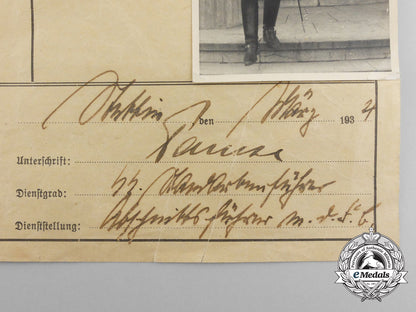 Stettin den März 1934
Unterschrift:
Dienstgrad: SS. Standartenführer
Dienststellung: Abschnittsführer m.d.F.b.
eMedals